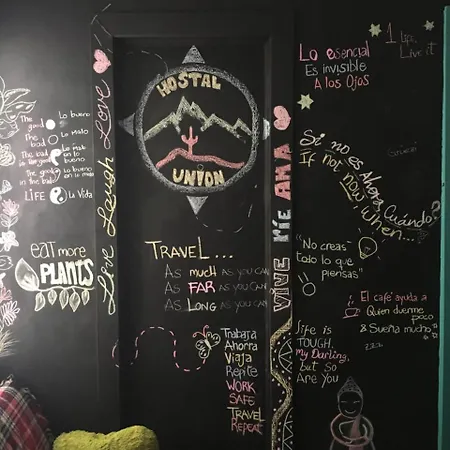 The good
Lo bueno
The bad
Lo malo
The bad in the good
Lo malo en lo bueno
The good in the bad
Lo bueno en lo malo
LIFE
La Vida
eat more
PLANTS
Live Laugh Love
HOSTAL
UNION
TRAVEL...
AS MUCH AS YOU CAN
AS FAR AS YOU CAN
AS LONG AS YOU CAN
Trabaja
Ahorra
Viaja
Repite
WORK
SAFE
TRAVEL
REPEAT
VIVE RíE AMA
Lo esencial
Es invisible
A los Ojos
1 Life,
Live it
Si no es Ahora, Cuándo?
If not now when...
"No creas
todo lo que
piensas"
El café ayuda a
Quien duerme
poco
& Sueña mucho
z.z.z.
Life is
TOUGH,
my Darling,
but so
Are You